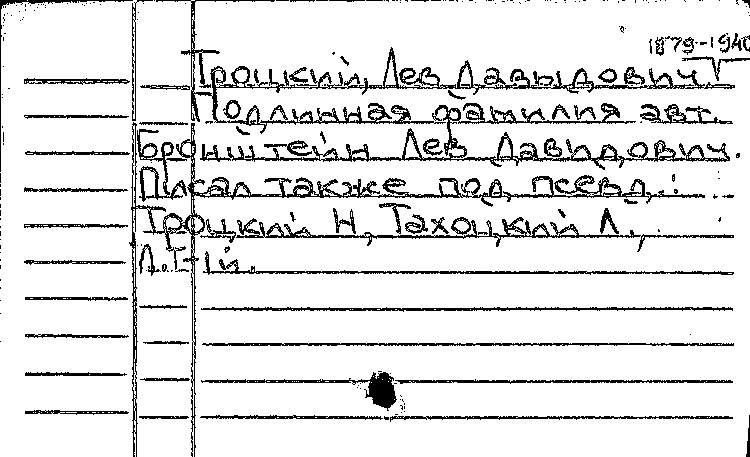 1879-1940
Троцкий, Лев Давыдович.
Подлинная фамилия авт.
Бронштейн Лев Давидович.
Писал также под псевд.:
Троцкий Н, Тахоцкий Л.,
Л.Т-ій.